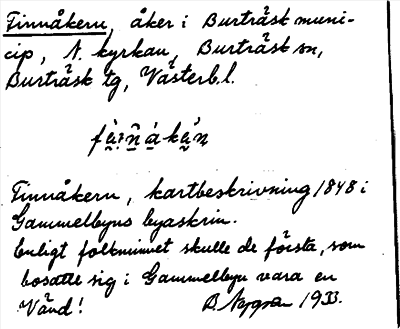 Finnåkern, åker i Burträsk muni-
cip, N. kyrkan, Burträsk sn,
Burträsk tg, Västerb.l.
Finnåkern, kartbeskrivning 1848 i
Gammelbyns byaskrin.
Enligt folkminnet skulle de första, som
bosatte sig i Gammelbyn vara en
Vänd!
B. Nygren 1933.